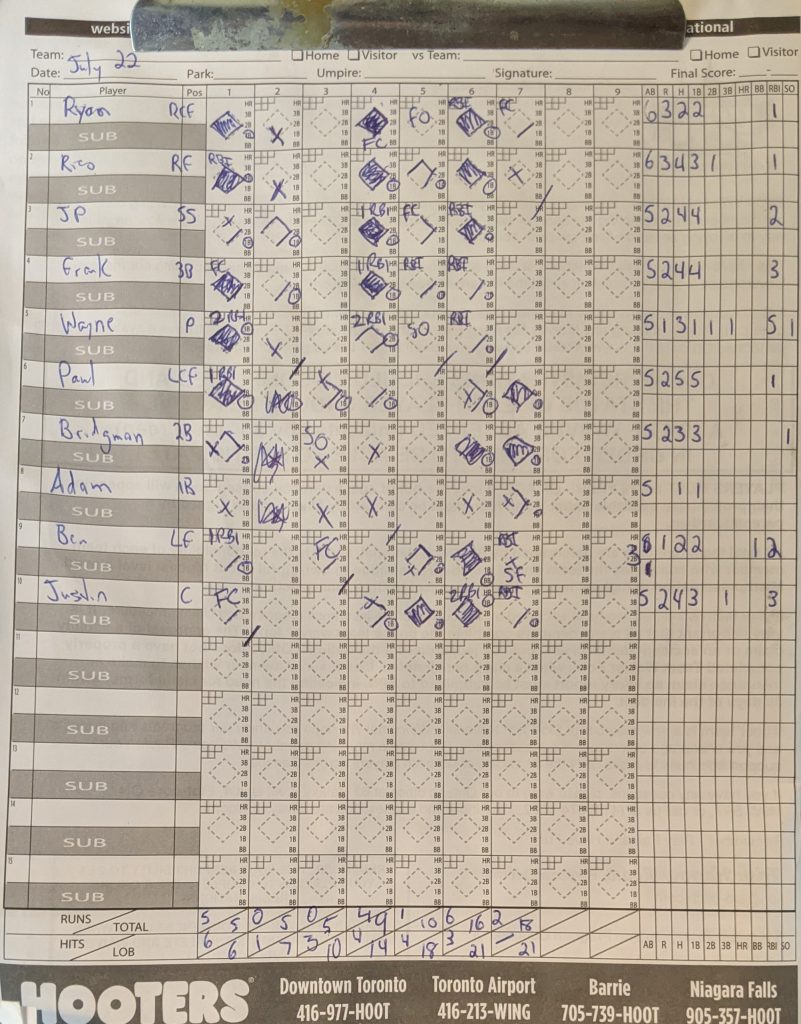 websi ational
Team: Home Visitor vs Team: Home Visitor
Date: July 22 Park: Umpire: Signature: Final Score: -
No Player Pos 1 2 3 4 5 6 7 8 9 AB R H 1B 2B 3B HR BB RBI SO
1 Ryan RCF FC FO RBI FC 6 3 2 2 1
SUB
2 Rico RF RBI 6 3 4 3 1 1
SUB
3 JP SS 1 RBI FC RBI 5 2 4 4 2
SUB
4 Frank 3B FC 1 RBI RBI RBI 5 2 4 4 3
SUB
5 Wayne P 2 RBI 2 RBI SO RBI 5 1 3 1 1 1 5 1
SUB
6 Paul LCF 1 RBI 5 2 5 5 1
SUB
7 Bridgman 2B SO 5 2 3 3 1
SUB
8 Adam 1B 5 1 1
SUB
9 Ben LF 1 RBI FC RBI SF 3 1 2 2 1 2
SUB
10 Justin C FC 2 RBI RBI 5 2 4 3 1 3
SUB
11
SUB
12
SUB
13
SUB
14
SUB
15
SUB
RUNS TOTAL 5 5 0 5 0 5 4 9 1 10 6 16 2 18
HITS LOB 6 6 1 7 3 10 4 14 4 18 3 21 21 AB R H 1B 2B 3B HR BB RBI SO
HOOTERS Downtown Toronto Toronto Airport Barrie Niagara Falls
416-977-HOOT 416-213-WING 705-739-HOOT 905-357-HOOT